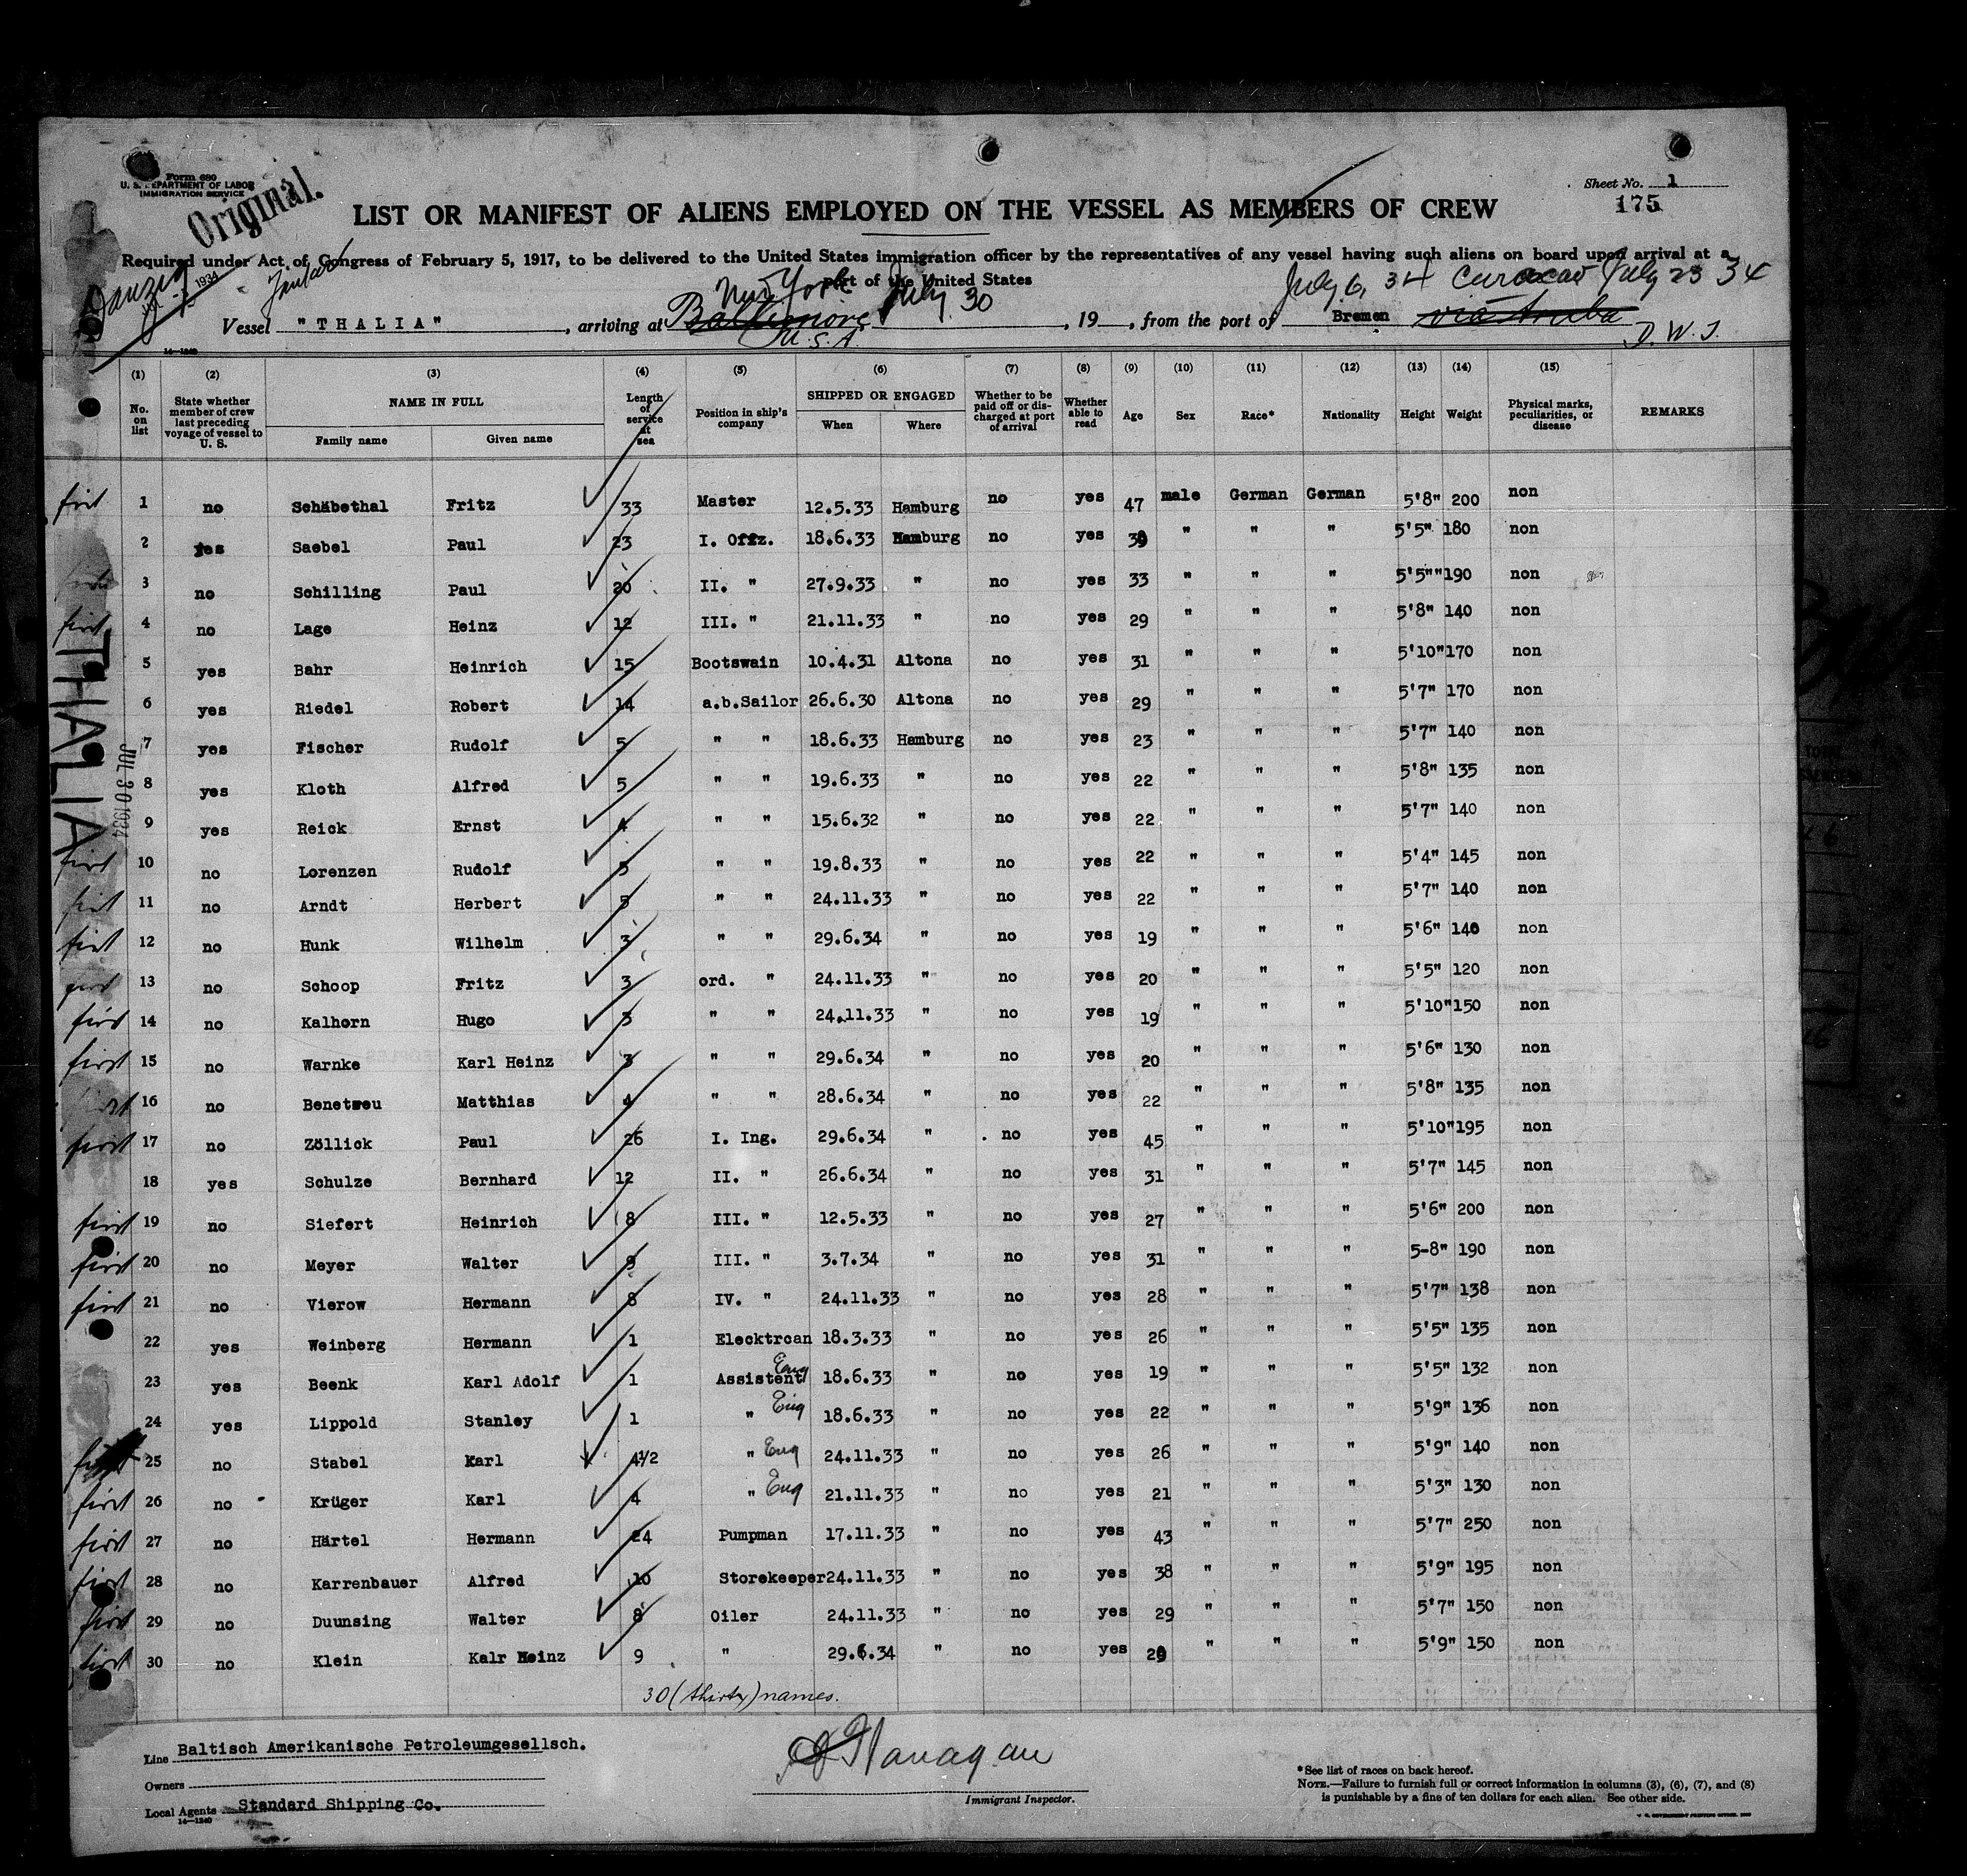 Form 680
U. S. DEPARTMENT OF LABOR
IMMIGRATION SERVICE
Original.
Sheet No. 1
175
LIST OR MANIFEST OF ALIENS EMPLOYED ON THE VESSEL AS MEMBERS OF CREW
Required under Act of Congress of February 5, 1917, to be delivered to the United States immigration officer by the representatives of any vessel having such aliens on board upon arrival at a
port of the United States
Danzig 1934
New York July 30 July 6, 34 Curacao July 23 34
Vessel "THALIA", arriving at Baltimore, 19, from the port of Bremen via Aruba
U.S.A. D.W.I.
14—1240
(1) (2) (3) (4) (5) (6) (7) (8) (9) (10) (11) (12) (13) (14) (15)
No. on list
State whether member of crew last preceding voyage of vessel to U. S.
NAME IN FULL
Family name Given name
Length of service at sea
Position in ship's company
SHIPPED OR ENGAGED
When Where
Whether to be paid off or discharged at port of arrival
Whether able to read
Age Sex Race* Nationality Height Weight
Physical marks, peculiarities, or disease
REMARKS
first 1 no Schäbethal Fritz 33 Master 12.5.33 Hamburg no yes 47 male German German 5'8" 200 non
2 yes Saebel Paul 23 I. Offz. 18.6.33 Hamburg no yes 39 " " " 5'5" 180 non
3 no Schilling Paul 20 II. " 27.9.33 " no yes 33 " " " 5'5"" 190 non
first 4 no Lage Heinz 12 III. " 21.11.33 " no yes 29 " " " 5'8" 140 non
5 yes Bahr Heinrich 15 Bootswain 10.4.31 Altona no yes 31 " " " 5'10" 170 non
6 yes Riedel Robert 14 a.b.Sailor 26.6.30 Altona no yes 29 " " " 5'7" 170 non
7 yes Fischer Rudolf 5 " " 18.6.33 Hamburg no yes 23 " " " 5'7" 140 non
8 yes Kloth Alfred 5 " " 19.6.33 " no yes 22 " " " 5'8" 135 non
9 yes Reick Ernst 4 " " 15.6.32 " no yes 22 " " " 5'7" 140 non
first 10 no Lorenzen Rudolf 5 " " 19.8.33 " no yes 22 " " " 5'4" 145 non
first 11 no Arndt Herbert 5 " " 24.11.33 " no yes 22 " " " 5'7" 140 non
first 12 no Hunk Wilhelm 3 " " 29.6.34 " no yes 19 " " " 5'6" 140 non
first 13 no Schoop Fritz 3 ord. " 24.11.33 " no yes 20 " " " 5'5" 120 non
first 14 no Kalhorn Hugo 3 " " 24.11.33 " no yes 19 " " " 5'10" 150 non
first 15 no Warnke Karl Heinz 3 " " 29.6.34 " no yes 20 " " " 5'6" 130 non
first 16 no Benetreu Matthias 4 " " 28.6.34 " no yes 22 " " " 5'8" 135 non
first 17 no Zöllick Paul 26 I. Ing. 29.6.34 " no yes 45 " " " 5'10" 195 non
18 yes Schulze Bernhard 12 II. " 26.6.34 " no yes 31 " " " 5'7" 145 non
first 19 no Siefert Heinrich 8 III. " 12.5.33 " no yes 27 " " " 5'6" 200 non
first 20 no Meyer Walter 9 III. " 3.7.34 " no yes 31 " " " 5-8" 190 non
first 21 no Vierow Hermann 8 IV. " 24.11.33 " no yes 28 " " " 5'7" 138 non
22 yes Weinberg Hermann 1 Elecktrcan 18.3.33 " no yes 26 " " " 5'5" 135 non
23 yes Beenk Karl Adolf 1 Assistent Eng 18.6.33 " no yes 19 " " " 5'5" 132 non
24 yes Lippold Stanley 1 " Eng 18.6.33 " no yes 22 " " " 5'9" 136 non
first 25 no Stabel Karl 4½ " Eng 24.11.33 " no yes 26 " " " 5'9" 140 non
first 26 no Krüger Karl 4 " Eng 21.11.33 " no yes 21 " " " 5'3" 130 non
first 27 no Härtel Hermann 24 Pumpman 17.11.33 " no yes 43 " " " 5'7" 250 non
first 28 no Karrenbauer Alfred 10 Storekeeper 24.11.33 " no yes 38 " " " 5'9" 195 non
first 29 no Duunsing Walter 8 Oiler 24.11.33 " no yes 29 " " " 5'7" 150 non
first 30 no Klein Kalr Heinz 9 " 29.6.34 " no yes 29 " " " 5'9" 150 non
THALIA
JUL 30 1934
30 (thirty) names.
Line Baltisch Amerikanische Petroleumgesellsch.
Owners
Local Agents Standard Shipping Co.
14—1240
Flanagan
Immigrant Inspector.
*See list of races on back hereof.
NOTE.—Failure to furnish full or correct information in columns (3), (6), (7), and (8)
is punishable by a fine of ten dollars for each alien. See other side.